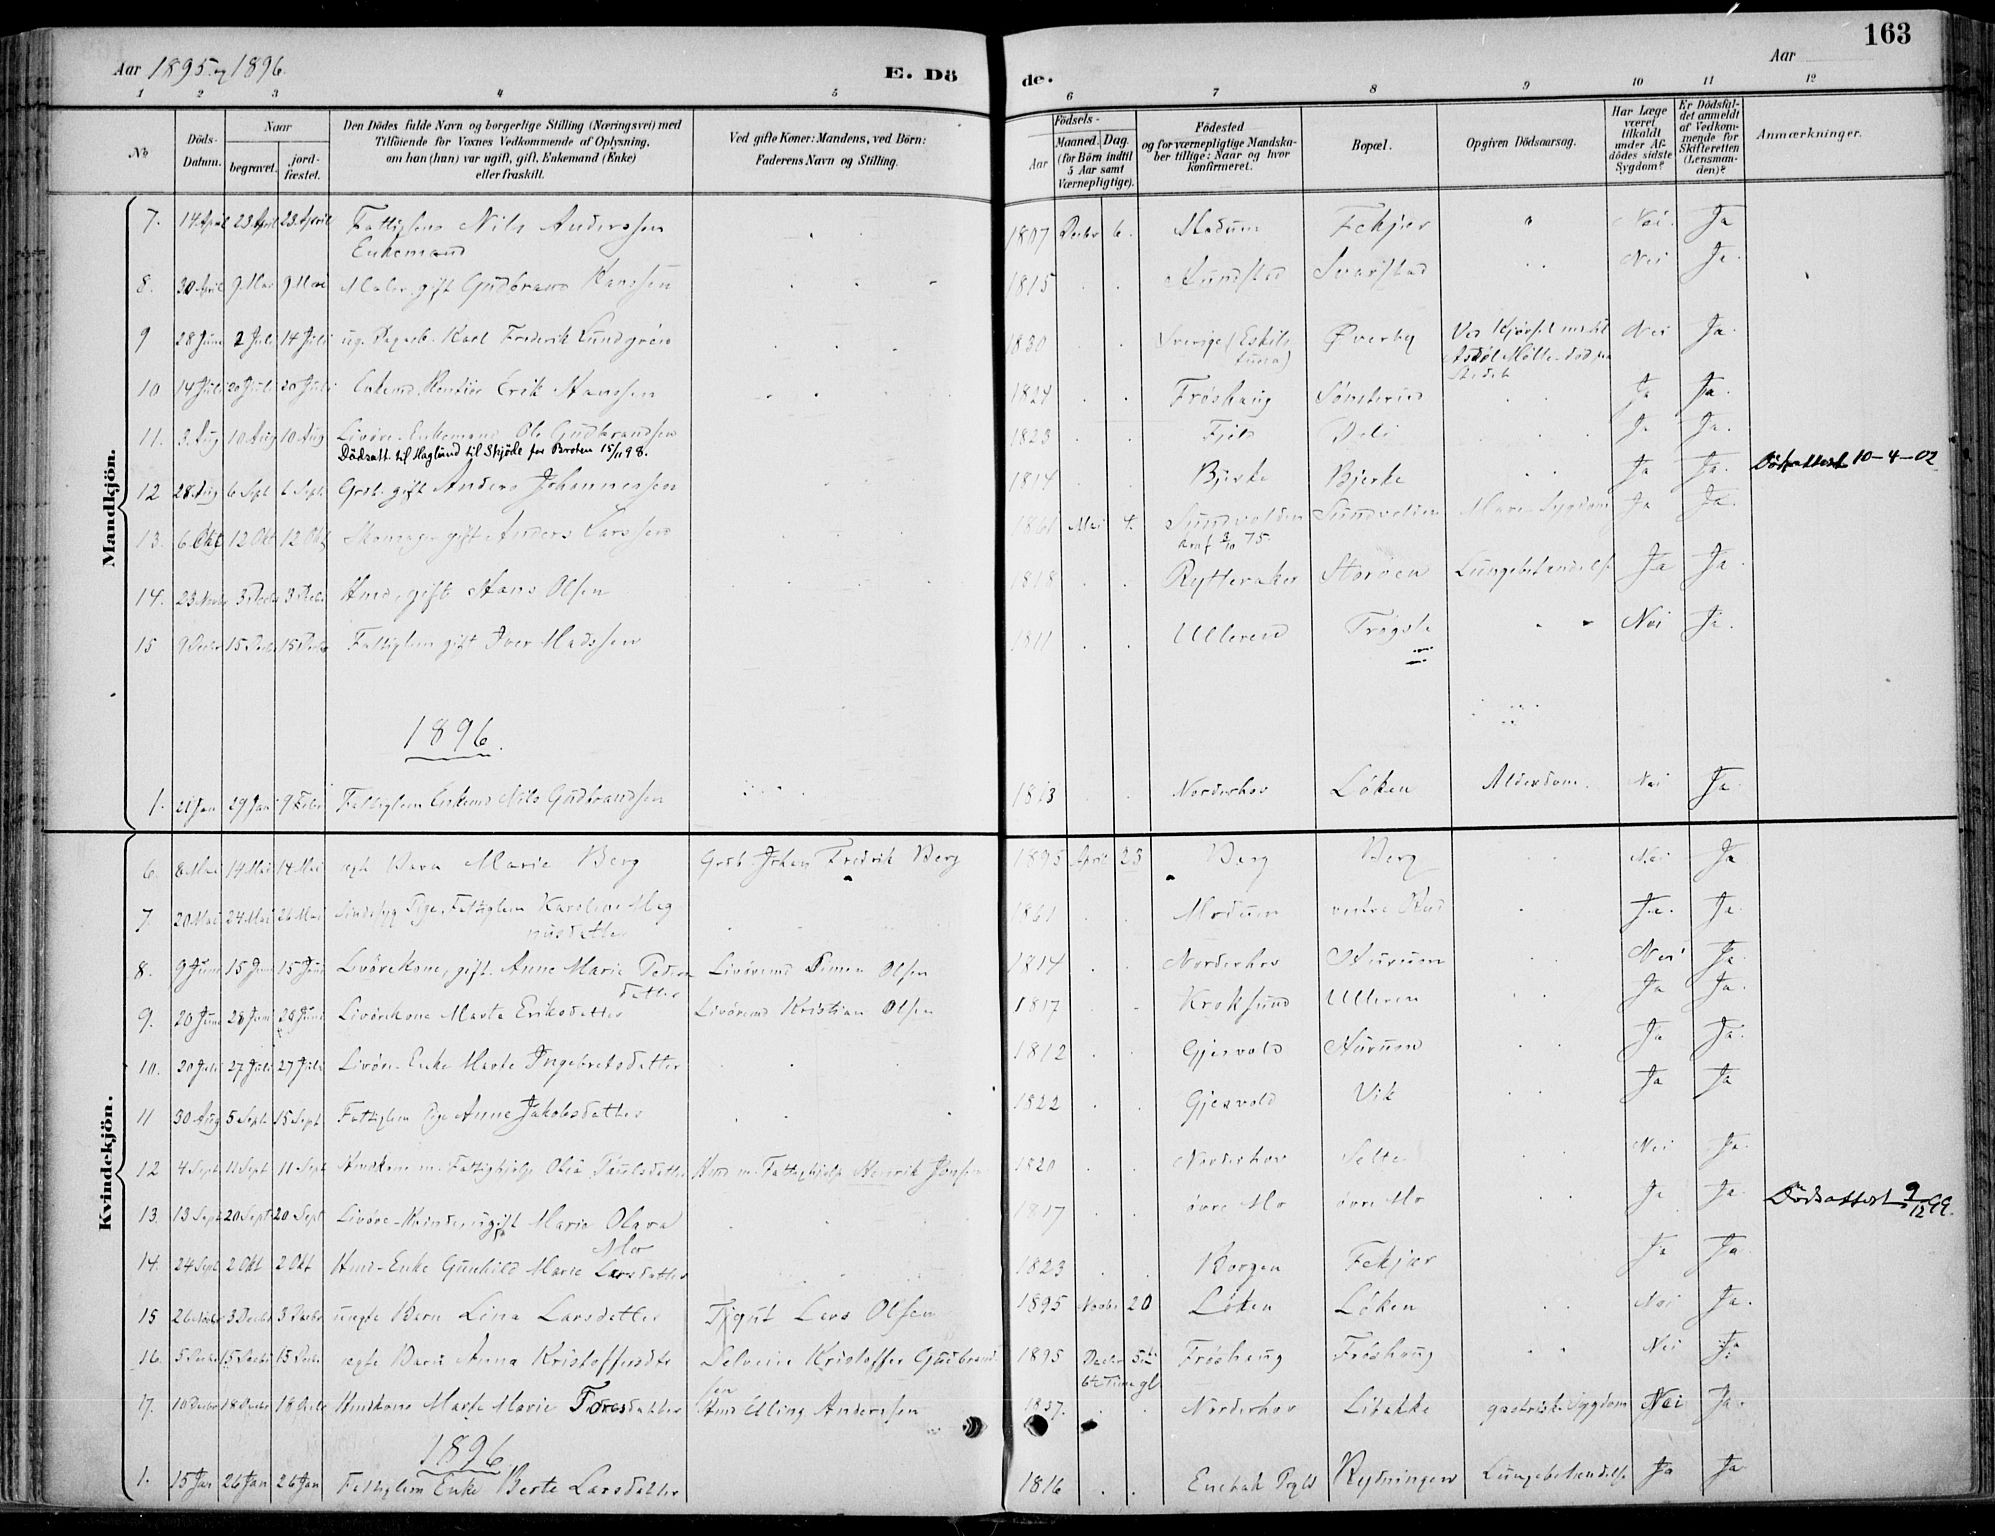 163
Aar 1895 og 1896.
E. Dö
de.
Aar
1 2 3 4 5 6 7 8 9 10 11 12
No
Döds-Datum.
Naar
begravet.
jord-fæstet.
Den Dödes fulde Navn og borgerlige Stilling (Næringsvei) med
Tilföiende for Voxnes Vedkommende af Oplysning,
om han (hun) var ugift, gift, Enkemand (Enke)
eller fraskilt.
Ved gifte Koner: Mandens, ved Börn:
Faderens Navn og Stilling.
Födsels-
Aar
Maaned. Dag.
(for Börn indtil
5 Aar samt
Værnepligtige).
Födested
og for værnepligtige Mandska-
ber tillige: Naar og hvor
konfirmeret.
Bopæl.
Opgiven Dödsaarsag.
Har Læge
været
tilkaldt
under Af-
dödes sidste
Sygdom?
Er Dödsfal-
det anmeldt
af Vedkom-
mende for
Skifteretten
(Lensman-
den)?
Anmærkninger.
Mandkjön.
7. 14 April 23 April 23 April Fattiglem Nils Anderssen 1807 Decbr 6. Modum Fekjær Nei. Ja
Enkemand
8. 30 April 9 Mai 9 Mai Maler gift Gudbrand Hanssen 1815 Svarstad Nei Ja.
9 28 Juni 2 Juli 14 Juli ug. Dagarb. Karl Frederik Lundgrén 1830 Sverige (Eskils Øverby Ved Kjørsel Nei Ja.
tuna) Mølle
10 14 Juli 20 Juli 20 Juli Enkemd Rentier Erik Hanssen 1824 Frøshaug Sønsterud Ja Ja.
11. 3 Aug 10 Aug 10 Aug Livøre-Enkemand Ole Gudbrandsen 1823 Ja Ja.
Dødsatt. til Hagland til Skjøde for Braten 15/11 98.
12 28 Aug 6 Sept 6 Sept Grdb. gift Anders Johannessen 1814 Bjerke Bjerke Ja Ja. Dødsattest 10-4-02
13. 6 Okt 12 Okt 12 Okt Skomager gift Anders Larssen 1861 Mai 4. Sundvolden Sundvolden Mave-Sygdom Ja Ja.
konf 3/10 75.
14. 23 Novbr 3 Decbr 3 Decbr Hmd, gift Hans Olsen 1818 Rytteraker Storøen Lungebetændelse Ja Ja.
15 9 Decbr 15 Decbr 15 Decbr Fattiglem gift Iver Madssen 1811 Ulleren Trøgsle Nei Ja.
1896.
1. 21 Jan 29 Jan 9 Febr Fattiglem Enkemd Nils Gudbrandsen 1813 Norderhov Løken Alderdom. Nei Ja.
Kvindekjön.
6. 8 Mai 14 Mai 14 Mai ægte Barn Marie Berg Grdb Johan Fredrik Berg 1895 April 23 Berg Berg Nei Ja
7 20 Mai 24 Mai 26 Mai Sindssyg Pige, Fattiglem Karoline Mag 1861 Modum vestre Rud Ja. Ja.
nusdatter
8. 9 Juni 15 Juni 15 Juni Livørekone, gift. Anne Marie Peders Livøremd Simen Olsen 1814 Norderhov Hurum Nei Ja.
datter
9. 20 Juni 28 Juni 28 Juni Livørekone Marte Eriksdatter Livøremd Kristian Olsen 1817 Kroksund Ulleren Ja Ja.
10. 20 Juli 27 Juli 27 Juli Livøre-Enke Marte Ingebretsdatter 1812 Gjesvold Hurum Ja Ja.
11 30 Aug 5 Sept 15 Sept Fattiglem Pige Anne Jakobsdatter 1822 Gjesvold Vik Ja Ja
12 4 Sept 11 Sept 11 Sept Hmdkone m. Fattighjelp Olia Paulsdatter Hmd m. Fattighjelp Henrik Jonsen 1820 Norderhov Selte Nei Ja.
13. 13 Sept 20 Sept 20 Sept Livøre-Kvinde ugift Marie Olava 1817 øvre Mo øvre Mo Ja Ja. Dødsattest 9/12 99.
Mo
14. 24 Sept 2 Okt 2 Okt Hmd-Enke Gunhild Marie Larsdatter 1823 Borgen Fekjær Ja Ja.
15 26 Novbr 3 Decbr 3 Decbr uægte Barn Lina Larsdatter Tjgut Lars Olsen 1895 Novbr 20 Løken Løken Nei Ja.
16. 5 Decbr 15 Decbr 15 Decbr ægte Barn Anna Kristoffersdtr Selveier Kristoffer Gudbrand 1895 Decbr 5te Frøshaug Frøshaug Nei Ja.
sen
17. 10 Decbr 18 Decbr 18 Decbr Hmdkone Marte Marie Toresdatter Hmd Elling Anderssen 1837. Norderhov Libakke gastrisk Sygdom Nei Ja.
1896
1. 15 Jan 26 Jan 26 Jan Fattiglem Enke Berte Larsdatter 1816 Enebak Prgld Rytningen Lungebetændelse Ja Ja